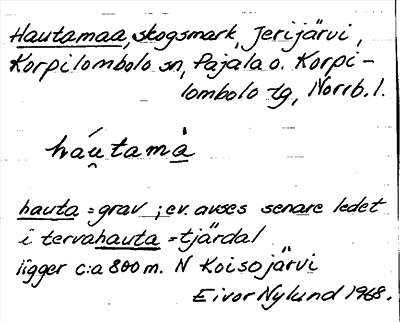 Hautamaa, skogsmark, Jerijärvi,
Korpilombolo sn, Pajala o. Korpi-
lombolo tg, Norrb. l.
háu̯tamȧ
hauta = grav ; ev. avses senare ledet
i tervahauta = tjärdal
ligger c:a 800 m. N Koisojärvi
Eivor Nylund 1968.